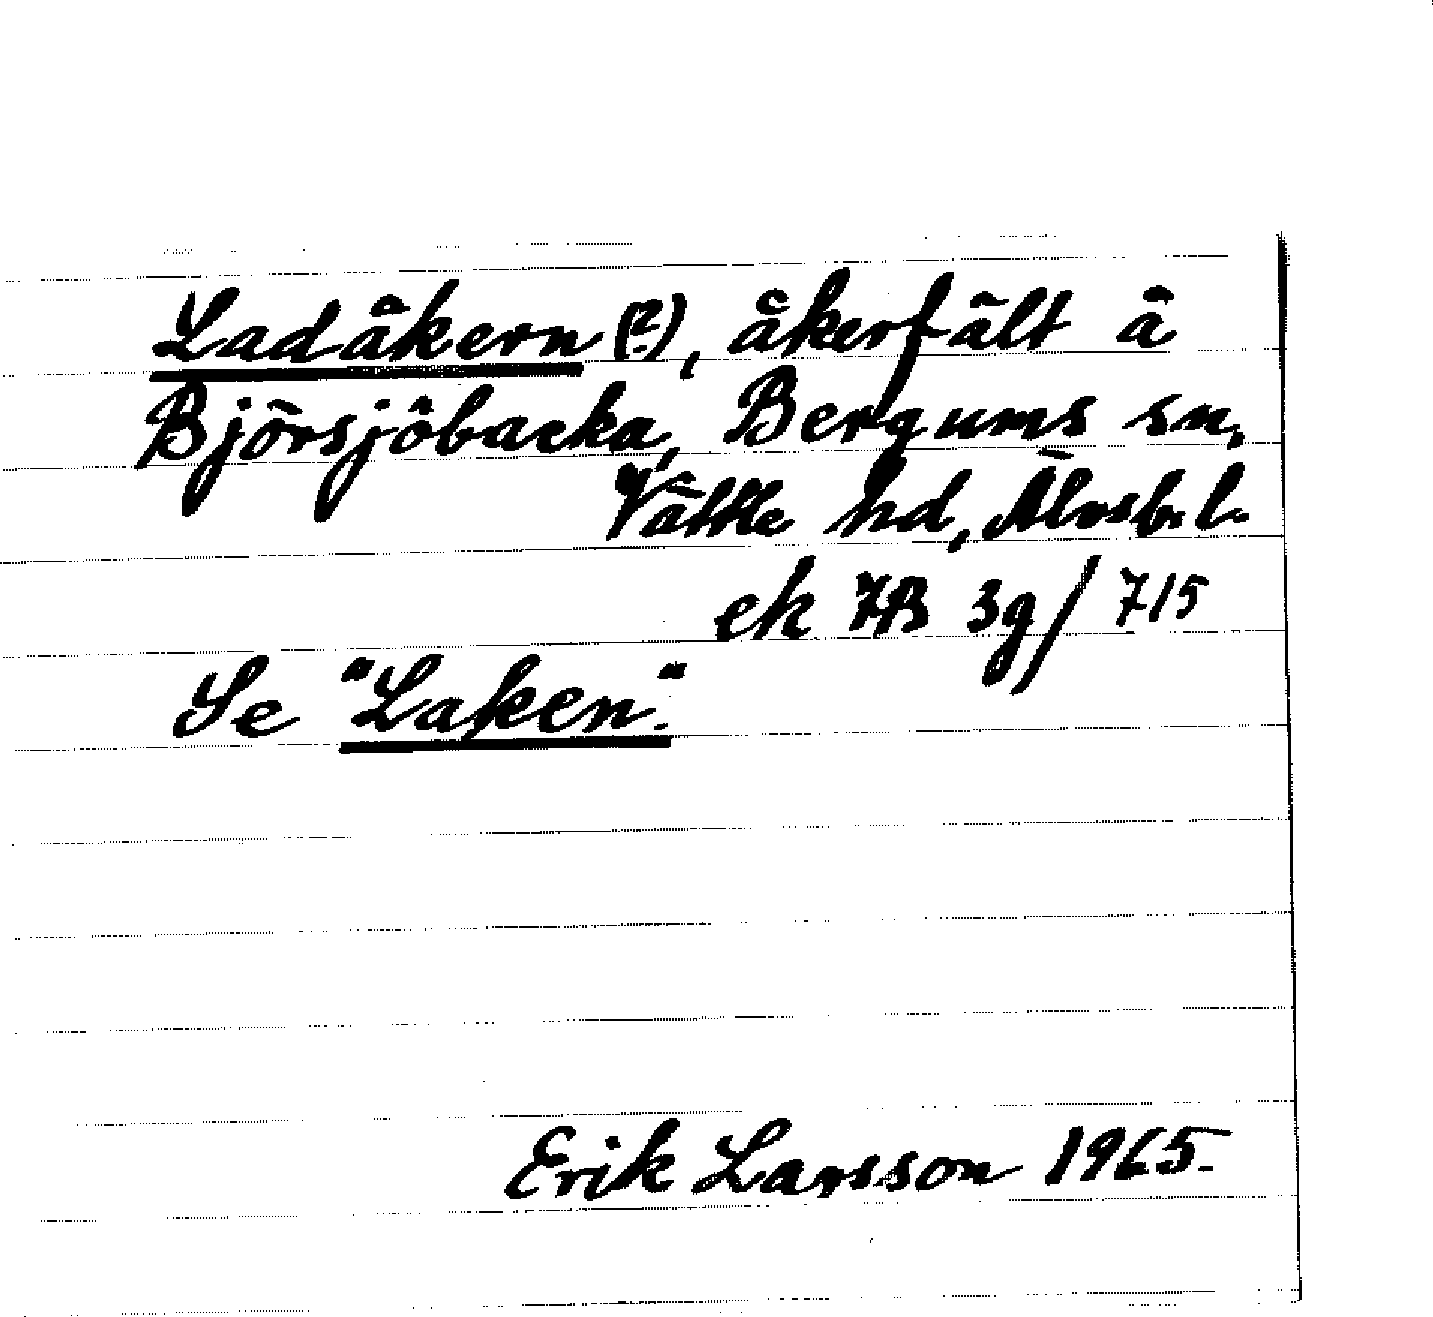 Ladåkern (?), åkerfält å
Björsjöbacka, Bergums sn,
Vättle hd, Älvsb. l.
ek 7B 3g/715
Se "Laken".
Erik Larsson 1965.